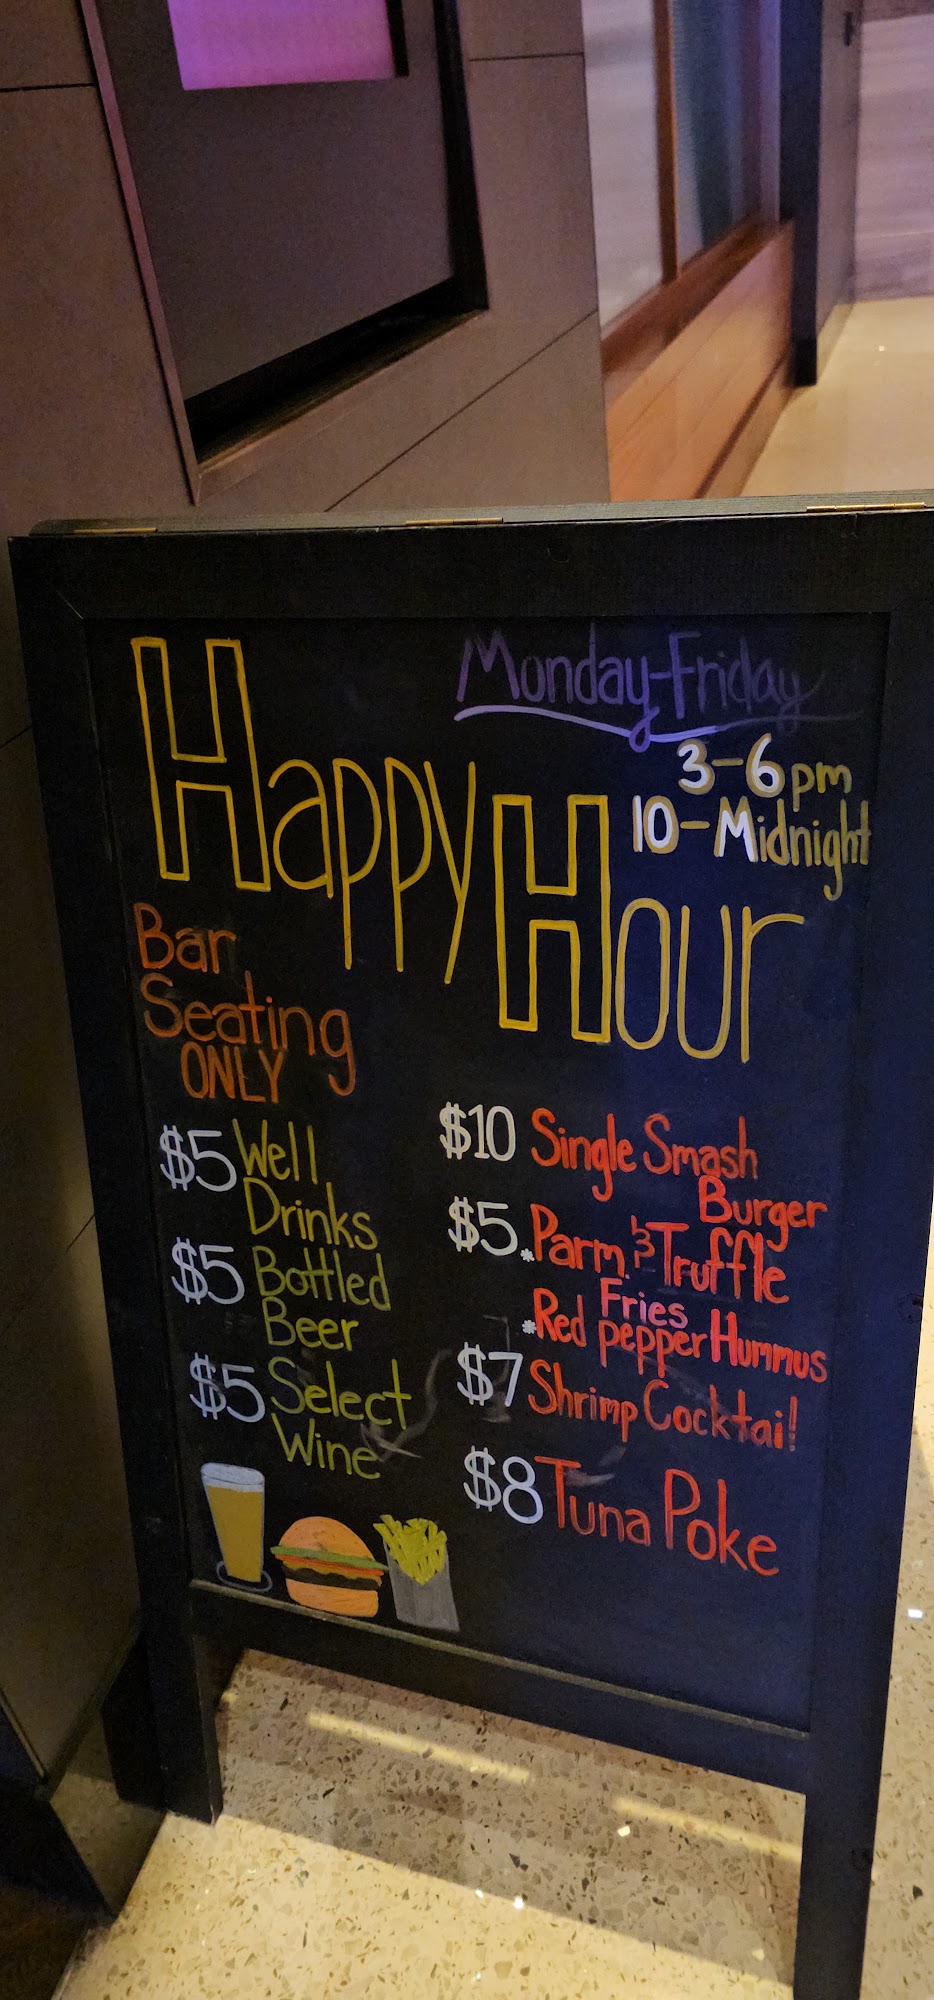 Monday-Friday
3-6pm
10-Midnight
Happy Hour
Bar
Seating
ONLY
$5 Well
Drinks
$5 Bottled
Beer
$5 Select
Wine
$10 Single Smash
Burger
$5 *Parm & Truffle
Fries
*Red pepper Hummus
$7 Shrimp Cocktail
$8 Tuna Poke